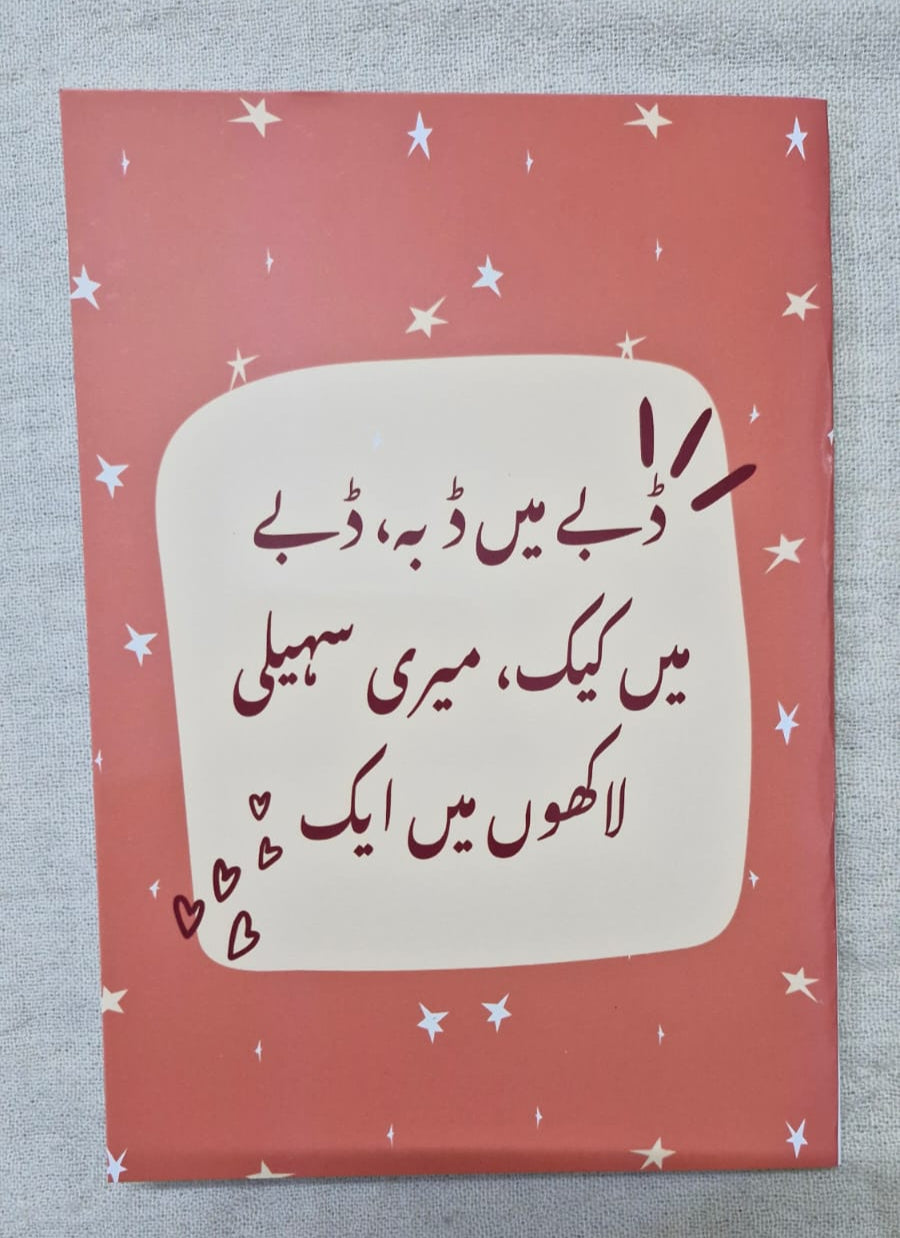 ڈبے میں ڈبہ، ڈبے
میں کیک، میری سہیلی
لاکھوں میں ایک